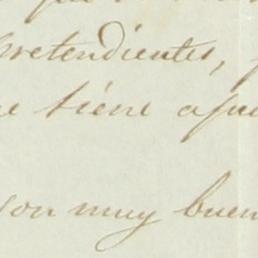 que
pretendientes,
e tiene aque
son muy buen